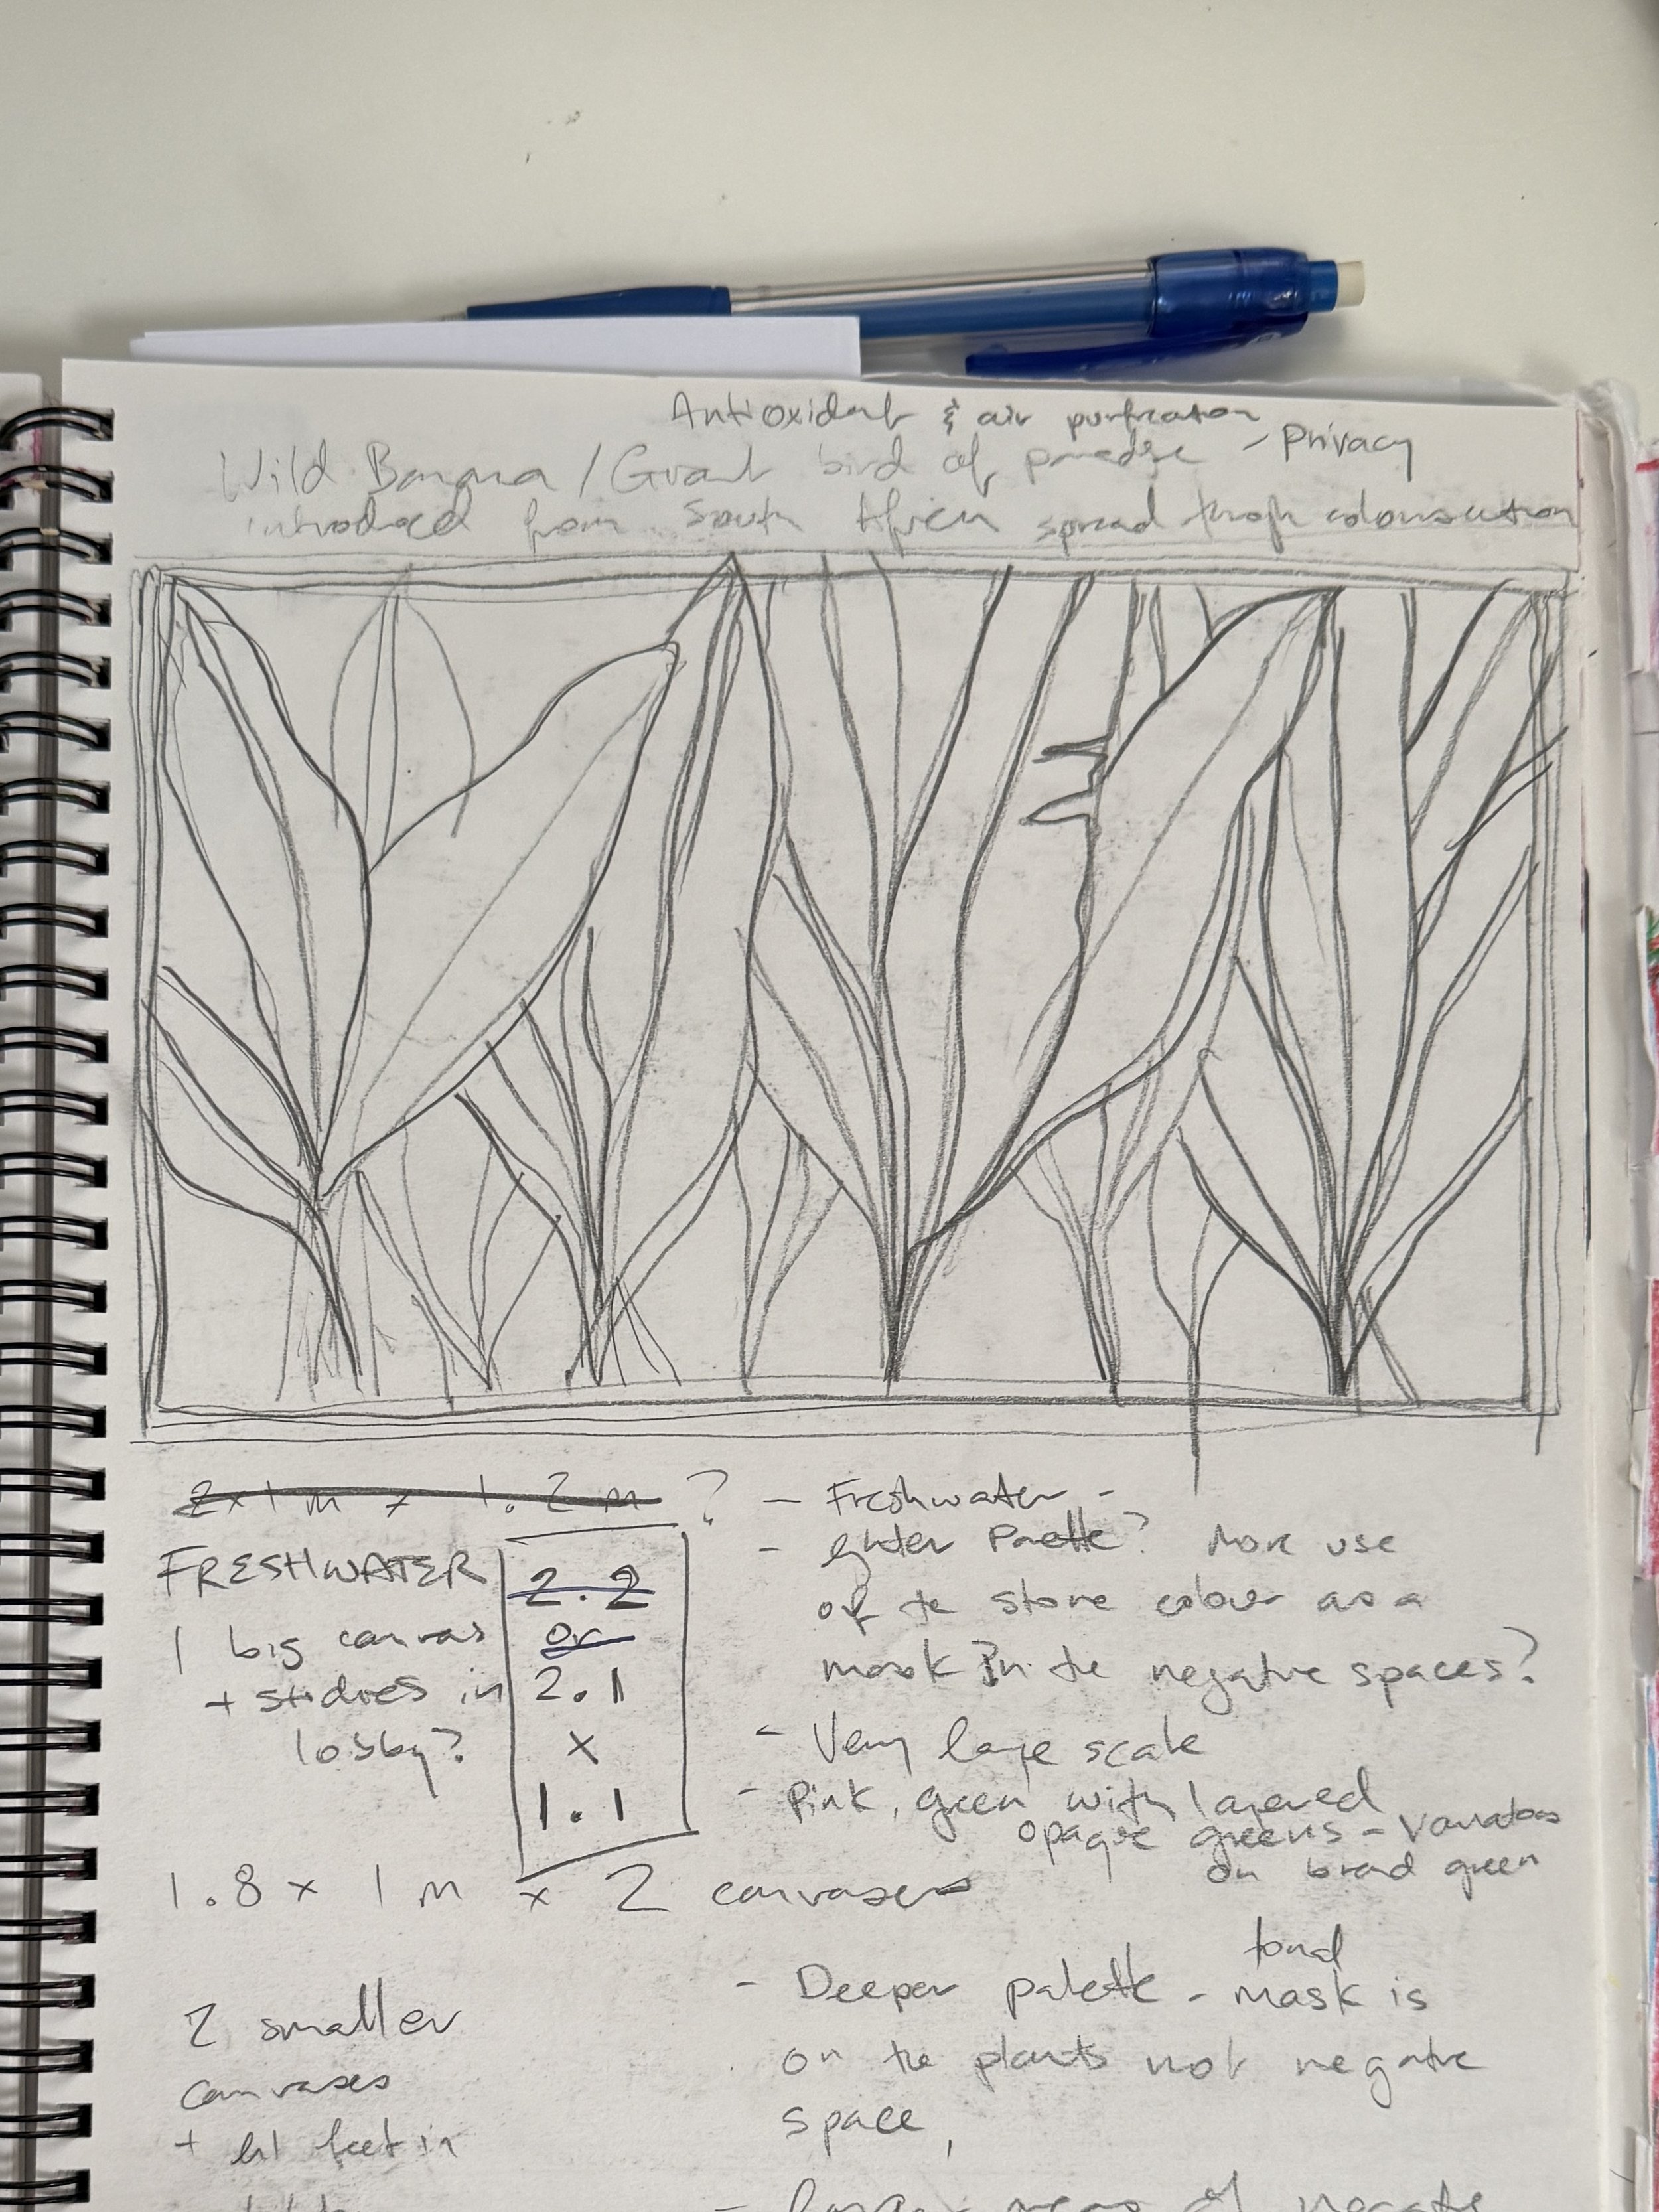 Antioxidant & air purification
Wild Banana / Giant bird of paradise - Privacy
introduced from South Africa spread through colonisation
2 x 1 m x 1.2 m ?
FRESHWATER
1 big canvas
+ studies in
lobby?
2.2
or
2.1
x
1.1
1.8 x 1 m x 2 canvases
2 smaller
canvases
+ feet in
- Freshwater -
- lighter Palette? More use
of the stone colour as a
mask in the negative spaces?
- Very large scale
- Pink, green with layered
opaque greens - variations
on broad green
- Deeper palette - tonal
mask is
on the plants not negative
space,
- large areas of negative